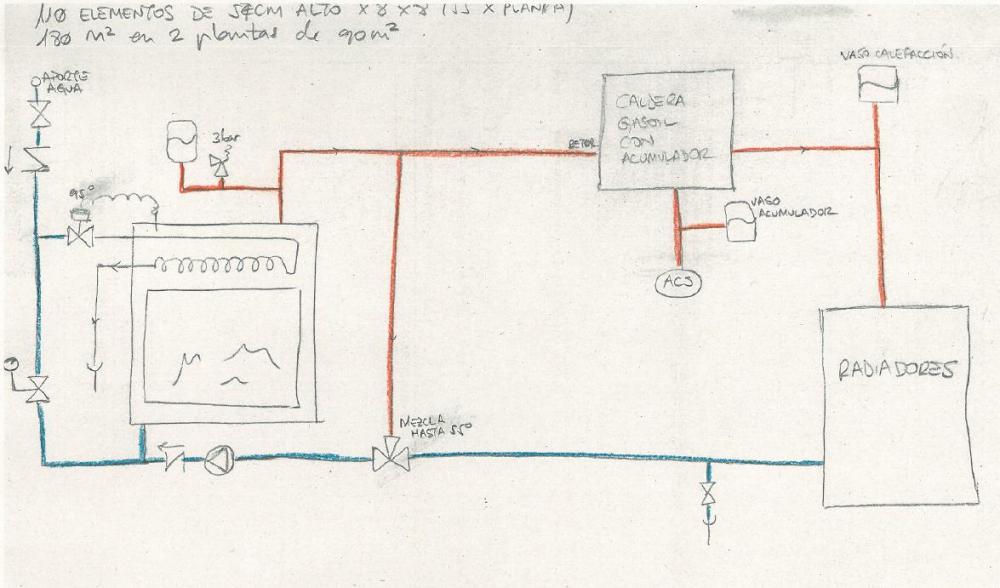 110 ELEMENTOS DE 54CM ALTO X 8 X 8 (55 X PLANTA)
180 m² en 2 plantas de 90m²
APORTE
AGUA
VASO CALEFACCIÓN
3bar
CALDERA
GASOIL
CON
ACUMULADOR
RETOR
95°
VASO
ACUMULADOR
ACS
RADIADORES
MEZCLA
HASTA 55°